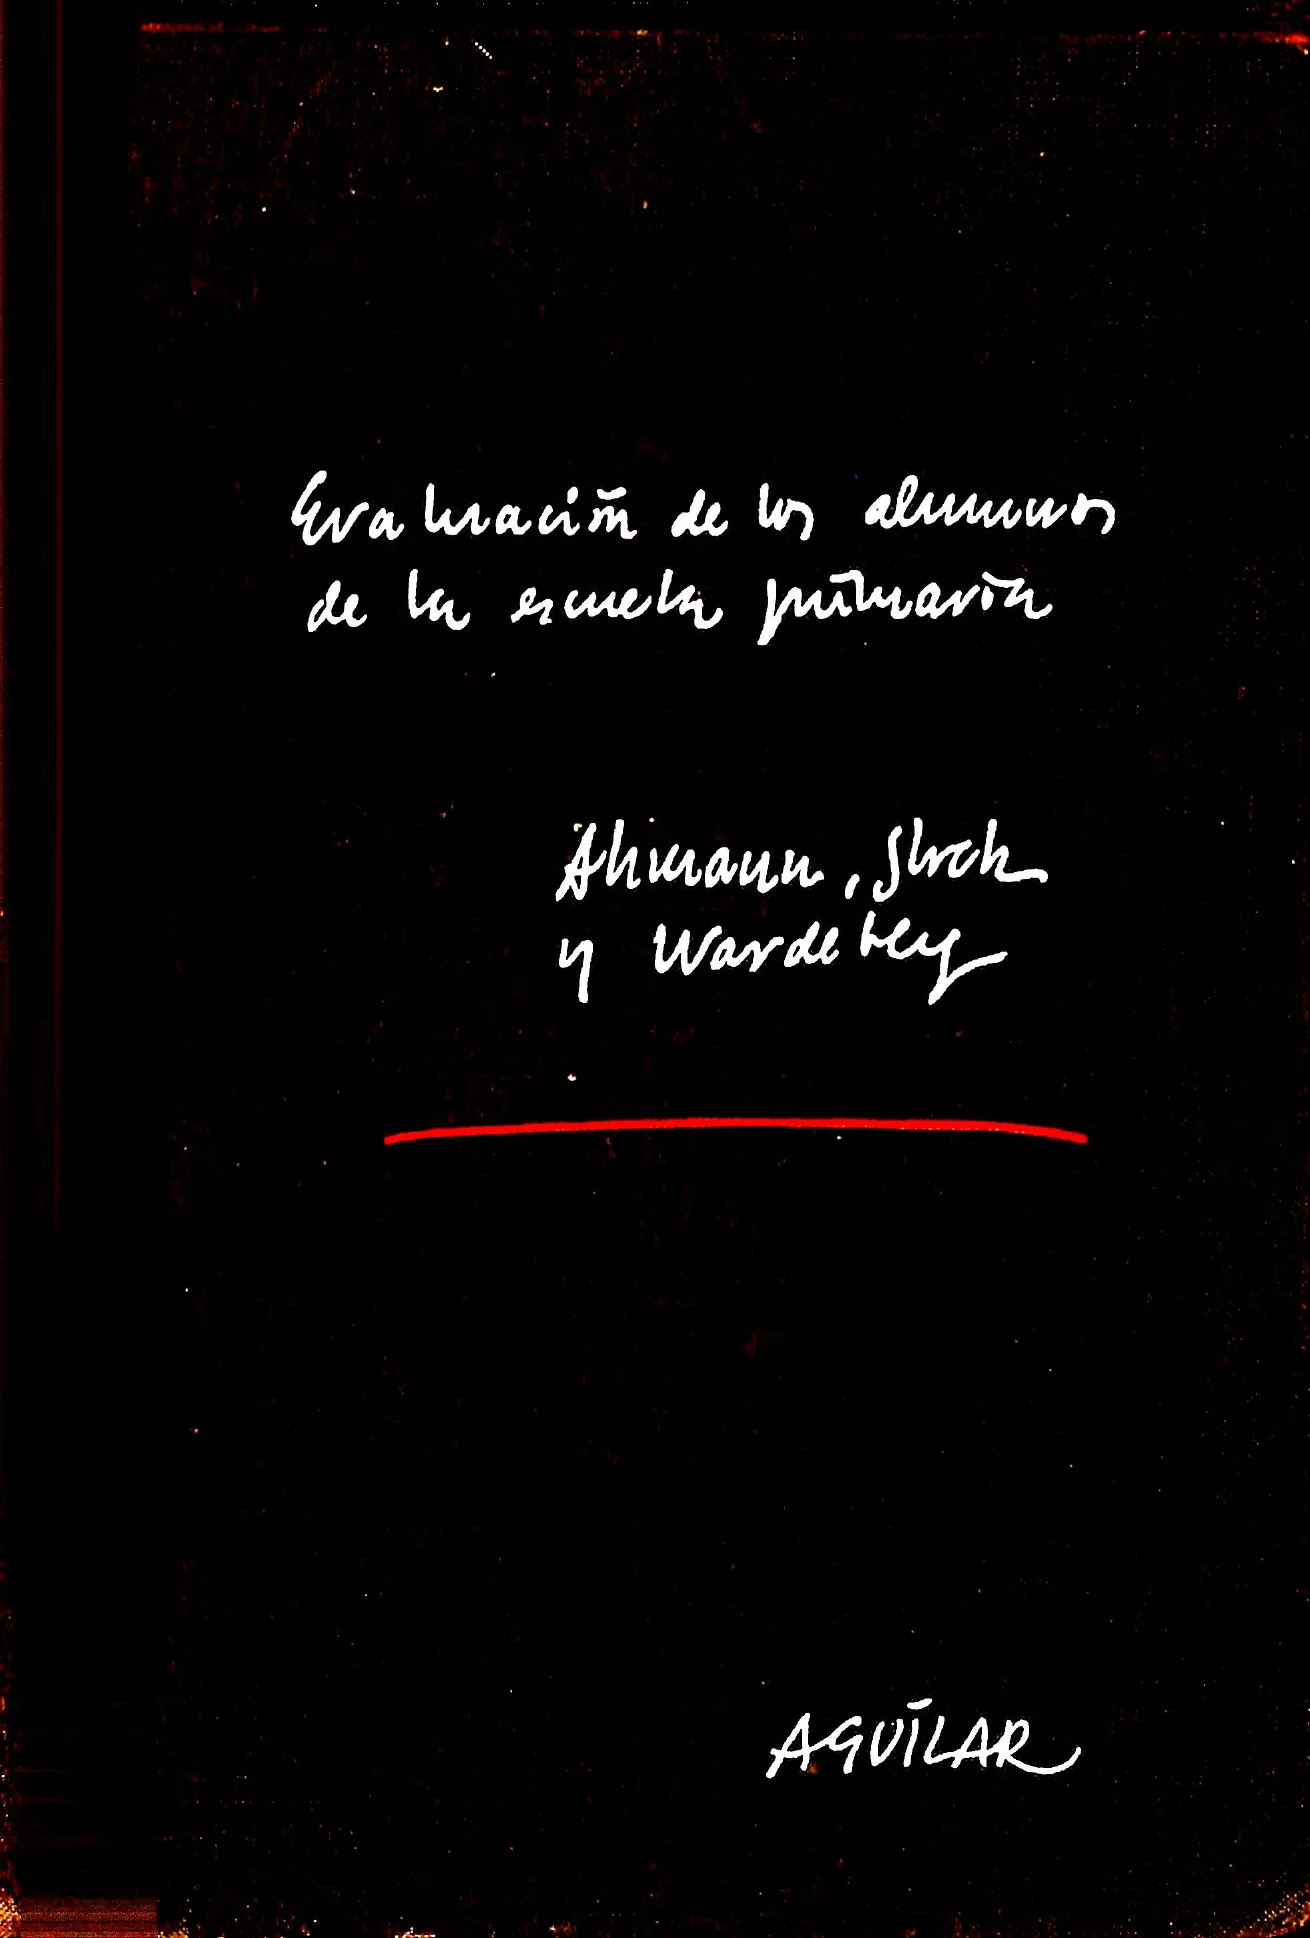 Evaluación de los alumnos
de la escuela primaria
Ahmann, Glock
y Wardeberg
AGUILAR